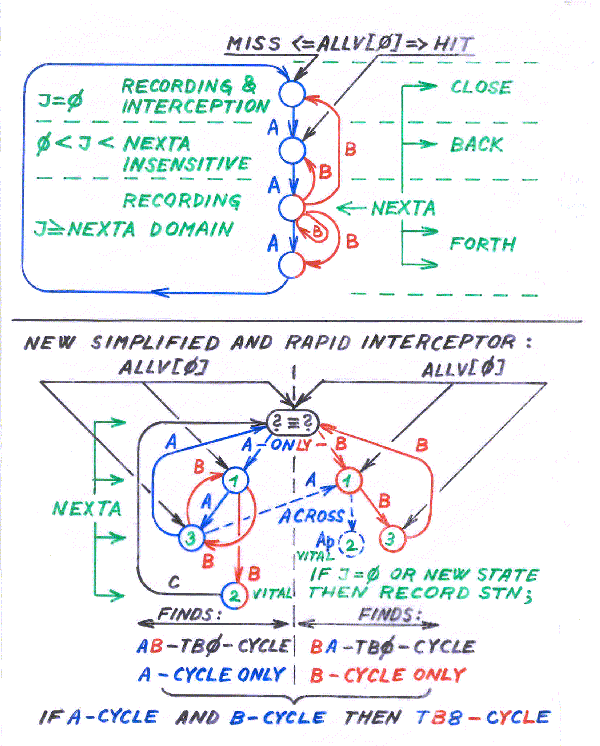 MISS <=ALLV[Ø]=> HIT
J=Ø
RECORDING &
INTERCEPTION
CLOSE
A
Ø < J < NEXTA
INSENSITIVE
B
BACK
B
A
RECORDING
J≥NEXTA DOMAIN
NEXTA
B
A
B
FORTH
NEW SIMPLIFIED AND RAPID INTERCEPTOR:
ALLV[Ø]
ALLV[Ø]
? ≡ ?
A-ONLY-B
A
B
B
1
A
1
A
B
NEXTA
ACROSS
3
B
Ap
2
VITAL
3
C
B
2
VITAL
IF J=Ø OR NEW STATE
THEN RECORD STN;
FINDS:
FINDS:
AB-TBØ-CYCLE
BA-TBØ-CYCLE
A-CYCLE ONLY
B-CYCLE ONLY
IF A-CYCLE AND B-CYCLE THEN TB8-CYCLE